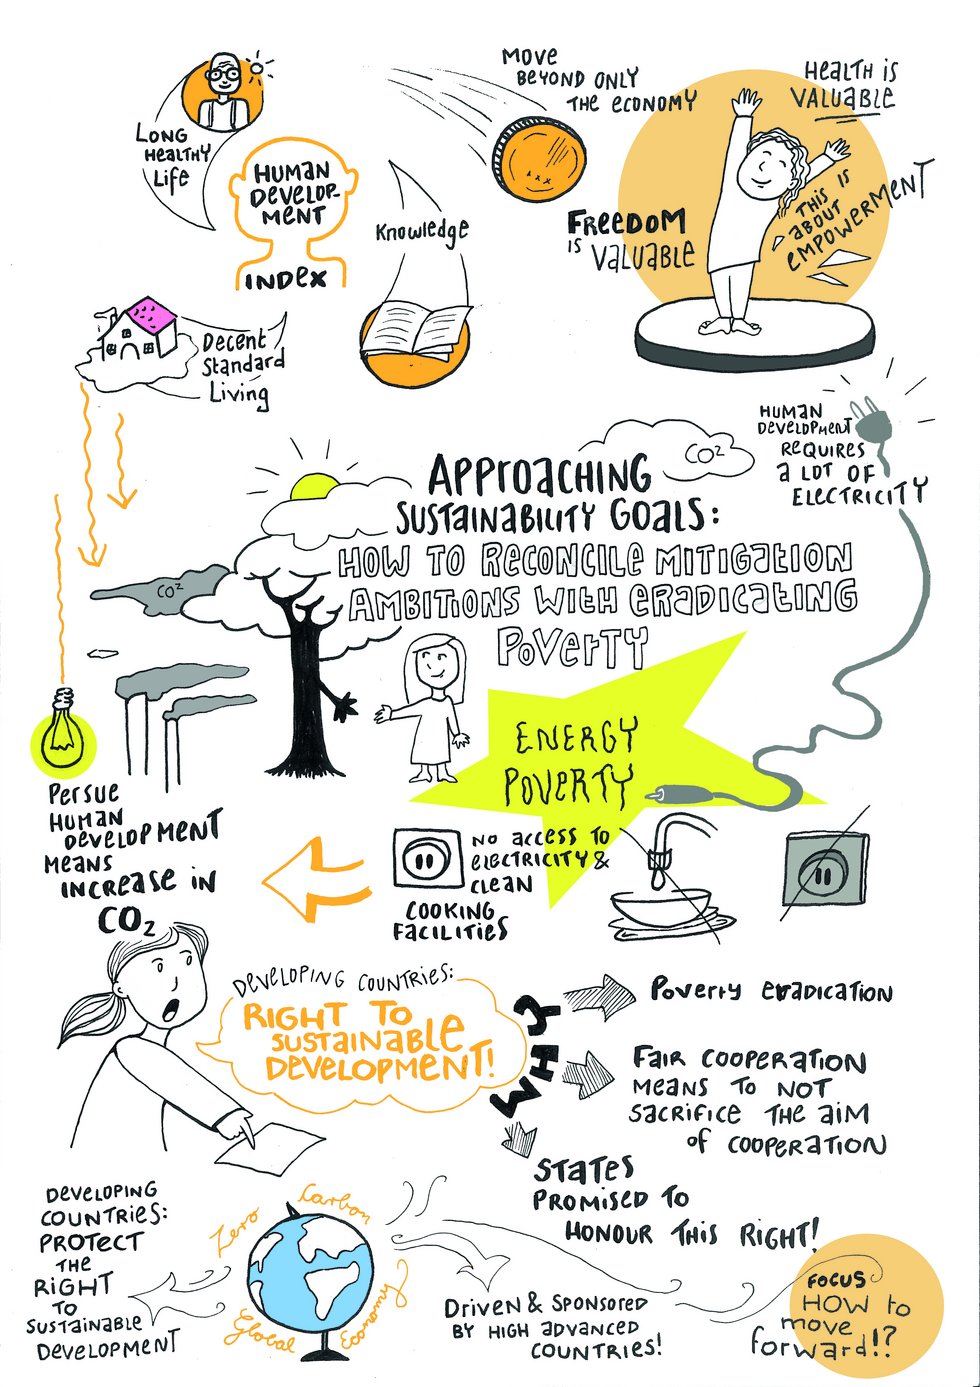 MOVE
BEYOND ONLY
THE ECONOMY
HEALTH is
VALUABLE
LONG
HEALTHY
Life
HUMAN
DEVELOP-
MENT
INDEX
Knowledge
FREEDOM
IS VALUABLE
THIS IS
ABOUT
EMPOWERMENT
Decent
Standard
Living
HUMAN
DEVELOPMENT
REQUIRES
A LOT OF
ELECTRICITY
CO2
APPROACHING
SUSTAINABILITY GOALS:
HOW TO RECONCILE MITIGATION
AMBITIONS WITH ERADICATING
POVERTY
CO2
ENERGY
POVERTY
PERSUE
HUMAN
DEVELOPMENT
MEANS
INCREASE IN
CO2
NO ACCESS TO
ELECTRICITY &
CLEAN
COOKING
FACILITIES
DEVELOPING COUNTRIES:
RIGHT TO
SUSTAINABLE
DEVELOPMENT!
WHY
POVERTY ERADICATION
FAIR COOPERATION
MEANS TO NOT
SACRIFICE THE AIM
OF COOPERATION
STATES
PROMISED TO
HONOUR THIS RIGHT!
DEVELOPING
COUNTRIES:
PROTECT
THE
RIGHT
TO
SUSTAINABLE
DEVELOPMENT
Zero
Carbon
Global
Economy
DRIVEN & SPONSORED
BY HIGH ADVANCED
COUNTRIES!
FOCUS
HOW to
move
forward!?